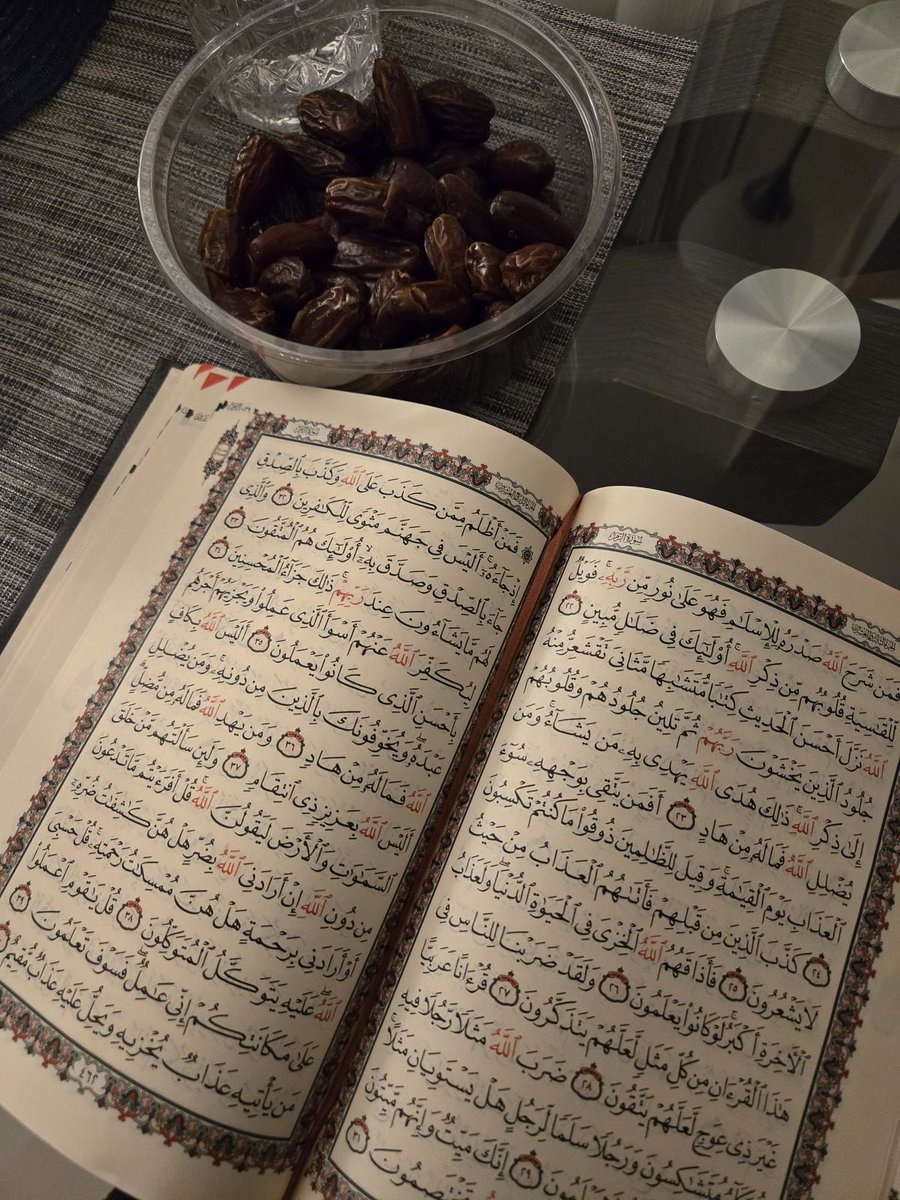 سورة الزمر
أَفَمَن شَرَحَ ٱللَّهُ صَدْرَهُۥ لِلْإِسْلَٰمِ فَهُوَ عَلَىٰ نُورٍ مِّن رَّبِّهِۦۚ فَوَيْلٌ
لِّلْقَٰسِيَةِ قُلُوبُهُم مِّن ذِكْرِ ٱللَّهِۚ أُو۟لَٰٓئِكَ فِى ضَلَٰلٍ مُّبِينٍ ٢٢
ٱللَّهُ نَزَّلَ أَحْسَنَ ٱلْحَدِيثِ كِتَٰبًا مُّتَشَٰبِهًا مَّثَانِىَ تَقْشَعِرُّ مِنْهُ
جُلُودُ ٱلَّذِينَ يَخْشَوْنَ رَبَّهُمْ ثُمَّ تَلِينُ جُلُودُهُمْ وَقُلُوبُهُمْ
إِلَىٰ ذِكْرِ ٱللَّهِۚ ذَٰلِكَ هُدَى ٱللَّهِ يَهْدِى بِهِۦ مَن يَشَآءُۚ وَمَن
يُضْلِلِ ٱللَّهُ فَمَا لَهُۥ مِنْ هَادٍ ٢٣ أَفَمَن يَتَّقِى بِوَجْهِهِۦ سُوٓءَ
ٱلْعَذَابِ يَوْمَ ٱلْقِيَٰمَةِۚ وَقِيلَ لِلظَّٰلِمِينَ ذُوقُوا۟ مَا كُنتُمْ تَكْسِبُونَ
٢٤ كَذَّبَ ٱلَّذِينَ مِن قَبْلِهِمْ فَأَتَىٰهُمُ ٱلْعَذَابُ مِنْ حَيْثُ
لَا يَشْعُرُونَ ٢٥ فَأَذَاقَهُمُ ٱللَّهُ ٱلْخِزْىَ فِى ٱلْحَيَوٰةِ ٱلدُّنْيَاۖ وَلَعَذَابُ
ٱلْءَاخِرَةِ أَكْبَرُۚ لَوْ كَانُوا۟ يَعْلَمُونَ ٢٦ وَلَقَدْ ضَرَبْنَا لِلنَّاسِ فِى
هَٰذَا ٱلْقُرْءَانِ مِن كُلِّ مَثَلٍ لَّعَلَّهُمْ يَتَذَكَّرُونَ ٢٧ قُرْءَانًا عَرَبِيًّا
غَيْرَ ذِى عِوَجٍ لَّعَلَّهُمْ يَتَّقُونَ ٢٨ ضَرَبَ ٱللَّهُ مَثَلًا رَّجُلًا فِيهِ
مُتَشَٰكِسُونَ وَرَجُلًا سَلَمًا لِّرَجُلٍ هَلْ يَسْتَوِيَانِ مَثَلًا
٢٩ إِنَّكَ مَيِّتٌ وَإِنَّهُم مَّيِّتُونَ
تَخْتَصِمُونَ ٣١
فَمَنْ أَظْلَمُ مِمَّن كَذَبَ عَلَى ٱللَّهِ وَكَذَّبَ بِٱلصِّدْقِ
إِذْ جَآءَهُۥٓۚ أَلَيْسَ فِى جَهَنَّمَ مَثْوًى لِّلْكَٰفِرِينَ ٣٢ وَٱلَّذِى
جَآءَ بِٱلصِّدْقِ وَصَدَّقَ بِهِۦٓۙ أُو۟لَٰٓئِكَ هُمُ ٱلْمُتَّقُونَ ٣٣
لَهُم مَّا يَشَآءُونَ عِندَ رَبِّهِمْۚ ذَٰلِكَ جَزَآءُ ٱلْمُحْسِنِينَ ٣٤
لِيُكَفِّرَ ٱللَّهُ عَنْهُمْ أَسْوَأَ ٱلَّذِى عَمِلُوا۟ وَيَجْزِيَهُمْ أَجْرَهُم
بِأَحْسَنِ ٱلَّذِى كَانُوا۟ يَعْمَلُونَ ٣٥ أَلَيْسَ ٱللَّهُ بِكَافٍ
عَبْدَهُۥۖ وَيُخَوِّفُونَكَ بِٱلَّذِينَ مِن دُونِهِۦۚ وَمَن يُضْلِلِ
ٱللَّهُ فَمَا لَهُۥ مِنْ هَادٍ ٣٦ وَمَن يَهْدِ ٱللَّهُ فَمَا لَهُۥ مِن مُّضِلٍّۗ
أَلَيْسَ ٱللَّهُ بِعَزِيزٍ ذِى ٱنتِقَامٍ ٣٧ وَلَئِن سَأَلْتَهُم مَّنْ خَلَقَ
ٱلسَّمَٰوَٰتِ وَٱلْأَرْضَ لَيَقُولُنَّ ٱللَّهُۚ قُلْ أَفَرَءَيْتُم مَّا تَدْعُونَ
مِن دُونِ ٱللَّهِ إِنْ أَرَادَنِىَ ٱللَّهُ بِضُرٍّ هَلْ هُنَّ كَٰشِفَٰتُ ضُرِّهِۦٓ
أَوْ أَرَادَنِى بِرَحْمَةٍ هَلْ هُنَّ مُمْسِكَٰتُ رَحْمَتِهِۦۚ قُلْ حَسْبِىَ
ٱللَّهُۖ عَلَيْهِ يَتَوَكَّلُ ٱلْمُتَوَكِّلُونَ ٣٨ قُلْ يَٰقَوْمِ ٱعْمَلُوا۟
عَلَىٰ مَكَانَتِكُمْ إِنِّى عَٰمِلٌۖ فَسَوْفَ تَعْلَمُونَ ٣٩
مَن يَأْتِيهِ عَذَابٌ يُخْزِيهِ وَيَحِلُّ عَلَيْهِ عَذَابٌ مُّقِيمٌ
٤٦٢